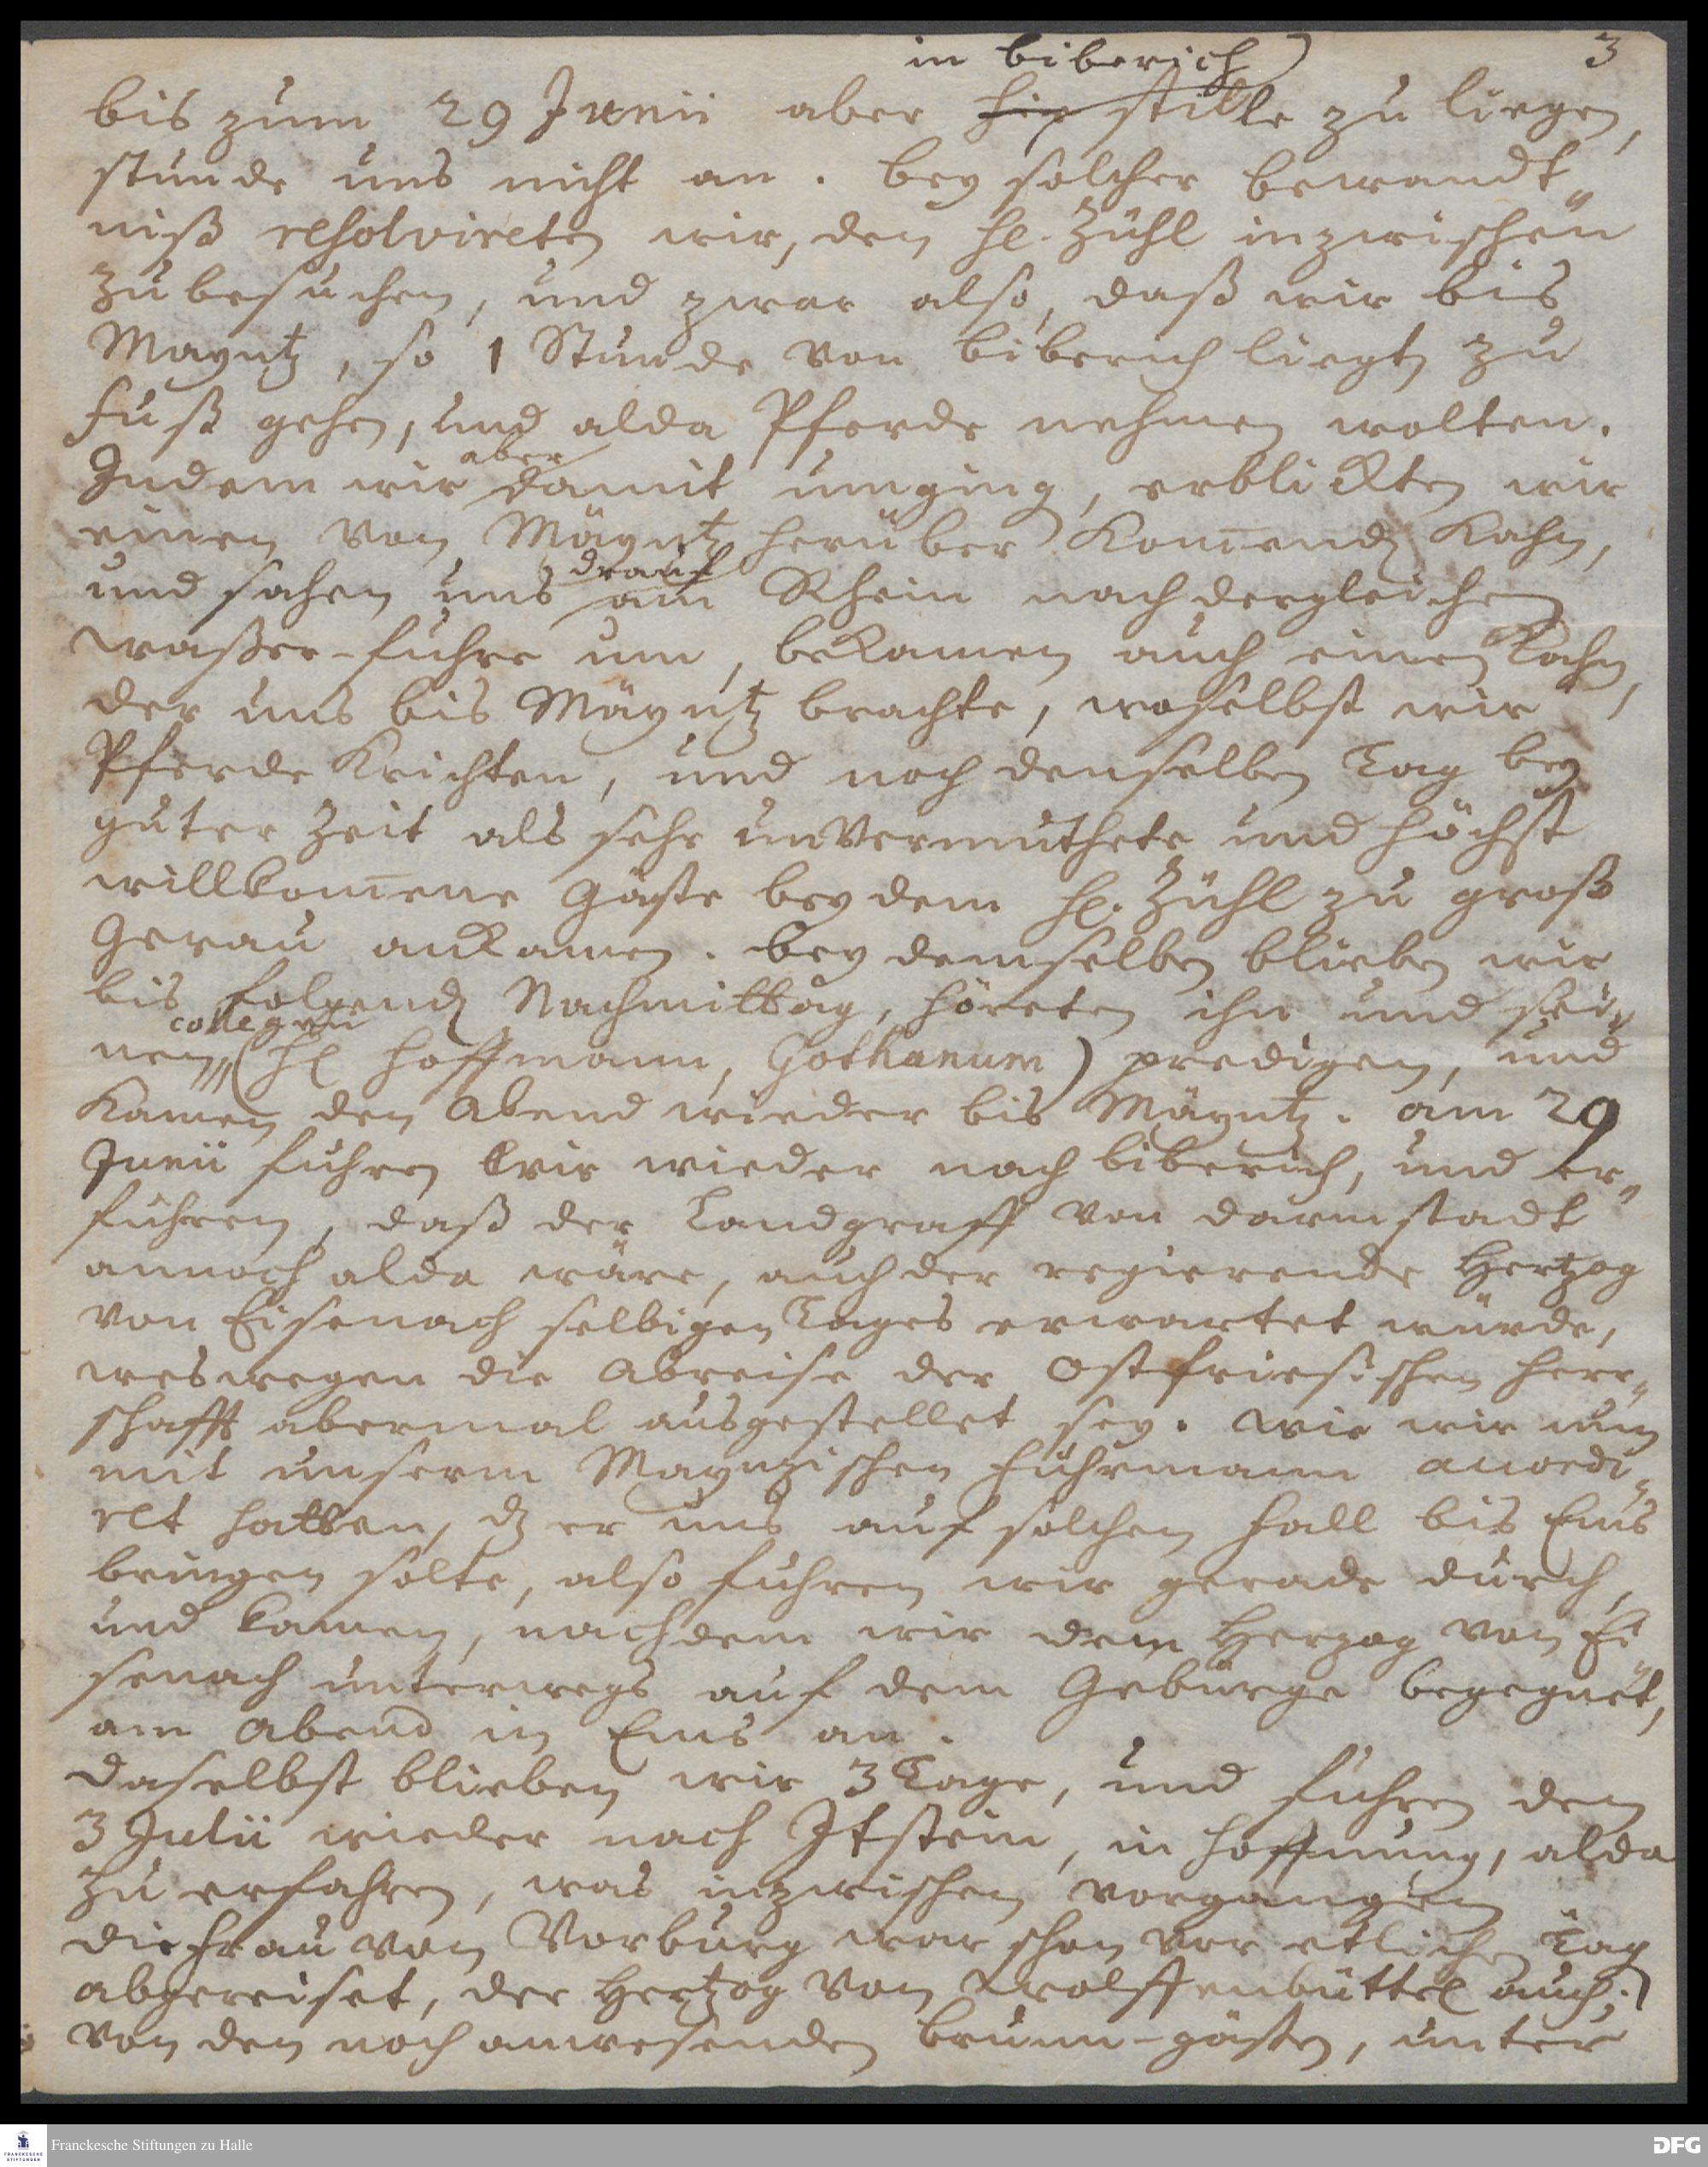 in biberich 3
bis zum 29 Junii aber hie stille zu liegen,
stunde uns nicht an. bey solcher bewandt„
niß resolvireten wir, den H. Zühl inzwischen
zu besuchen, und zwar also, daß wir bis
Mayntz, so 1 Stunde von biberich liegt, zu
fuß gehen, und alda Pferde nehmen wolten.
aber
Indem wir damit umging, erblickten wir
einen von Mäyntz herüber kom̅end Kahn,
drauf
und sahen uns am Rhein nach dergleichen
waßer-fuhre um, bekamen auch einen Kahn,
der uns bis Mäyntz brachte, woselbst wir
Pferde krichten, und noch denselben Tag bey
guter Zeit als sehr unvermuthete und höchst
willkom̅ene Gäste bey dem H. Zühl zu groß
Gerau ankamen. Bey demselben blieben wir
bis folgend Nachmittag, höreten ihn und sei„
collegen
nen (H Hoffmann, Gothanum) predigen, und
kamen den Abend wieder bis Mäyntz. am 29
Junii fuhren wir wieder nach biberich, und er„
fuhren, daß der Landgraff von Darmstadt
annoch alda wäre, auch der regierende Hertzog
von Eisenach selbigen Tages erwartet würde,
weswegen die Abreise der Ostfriesischen Herr„
schafft abermal ausgestellet sey. Wie wir nun
mit unserm Maynzischen Fuhrmann accordi„
ret hatten, dz er uns auf solchen fall bis Ems
bringen solte, also fuhren wir gerade durch,
und kamen, nachdem wir dem Herzog von Ei
senach unterwegs auf dem Gebürge begegnet,
am Abend in Ems an.
Daselbst blieben wir 3 Tage, und fuhren den
3 Julii wieder nach Itstein, in hoffnung, alda
zu erfahren, was inzwischen vorgangen
die Frau von Vorburg war schon vor etlichen Tag
abgereiset, der Hertzog von Wolffenbüttel auch;
von den noch anwesenden brunn-gästen, unter
Franckesche Stiftungen zu Halle
FRANCKESCHE
STIFTUNGEN
DFG